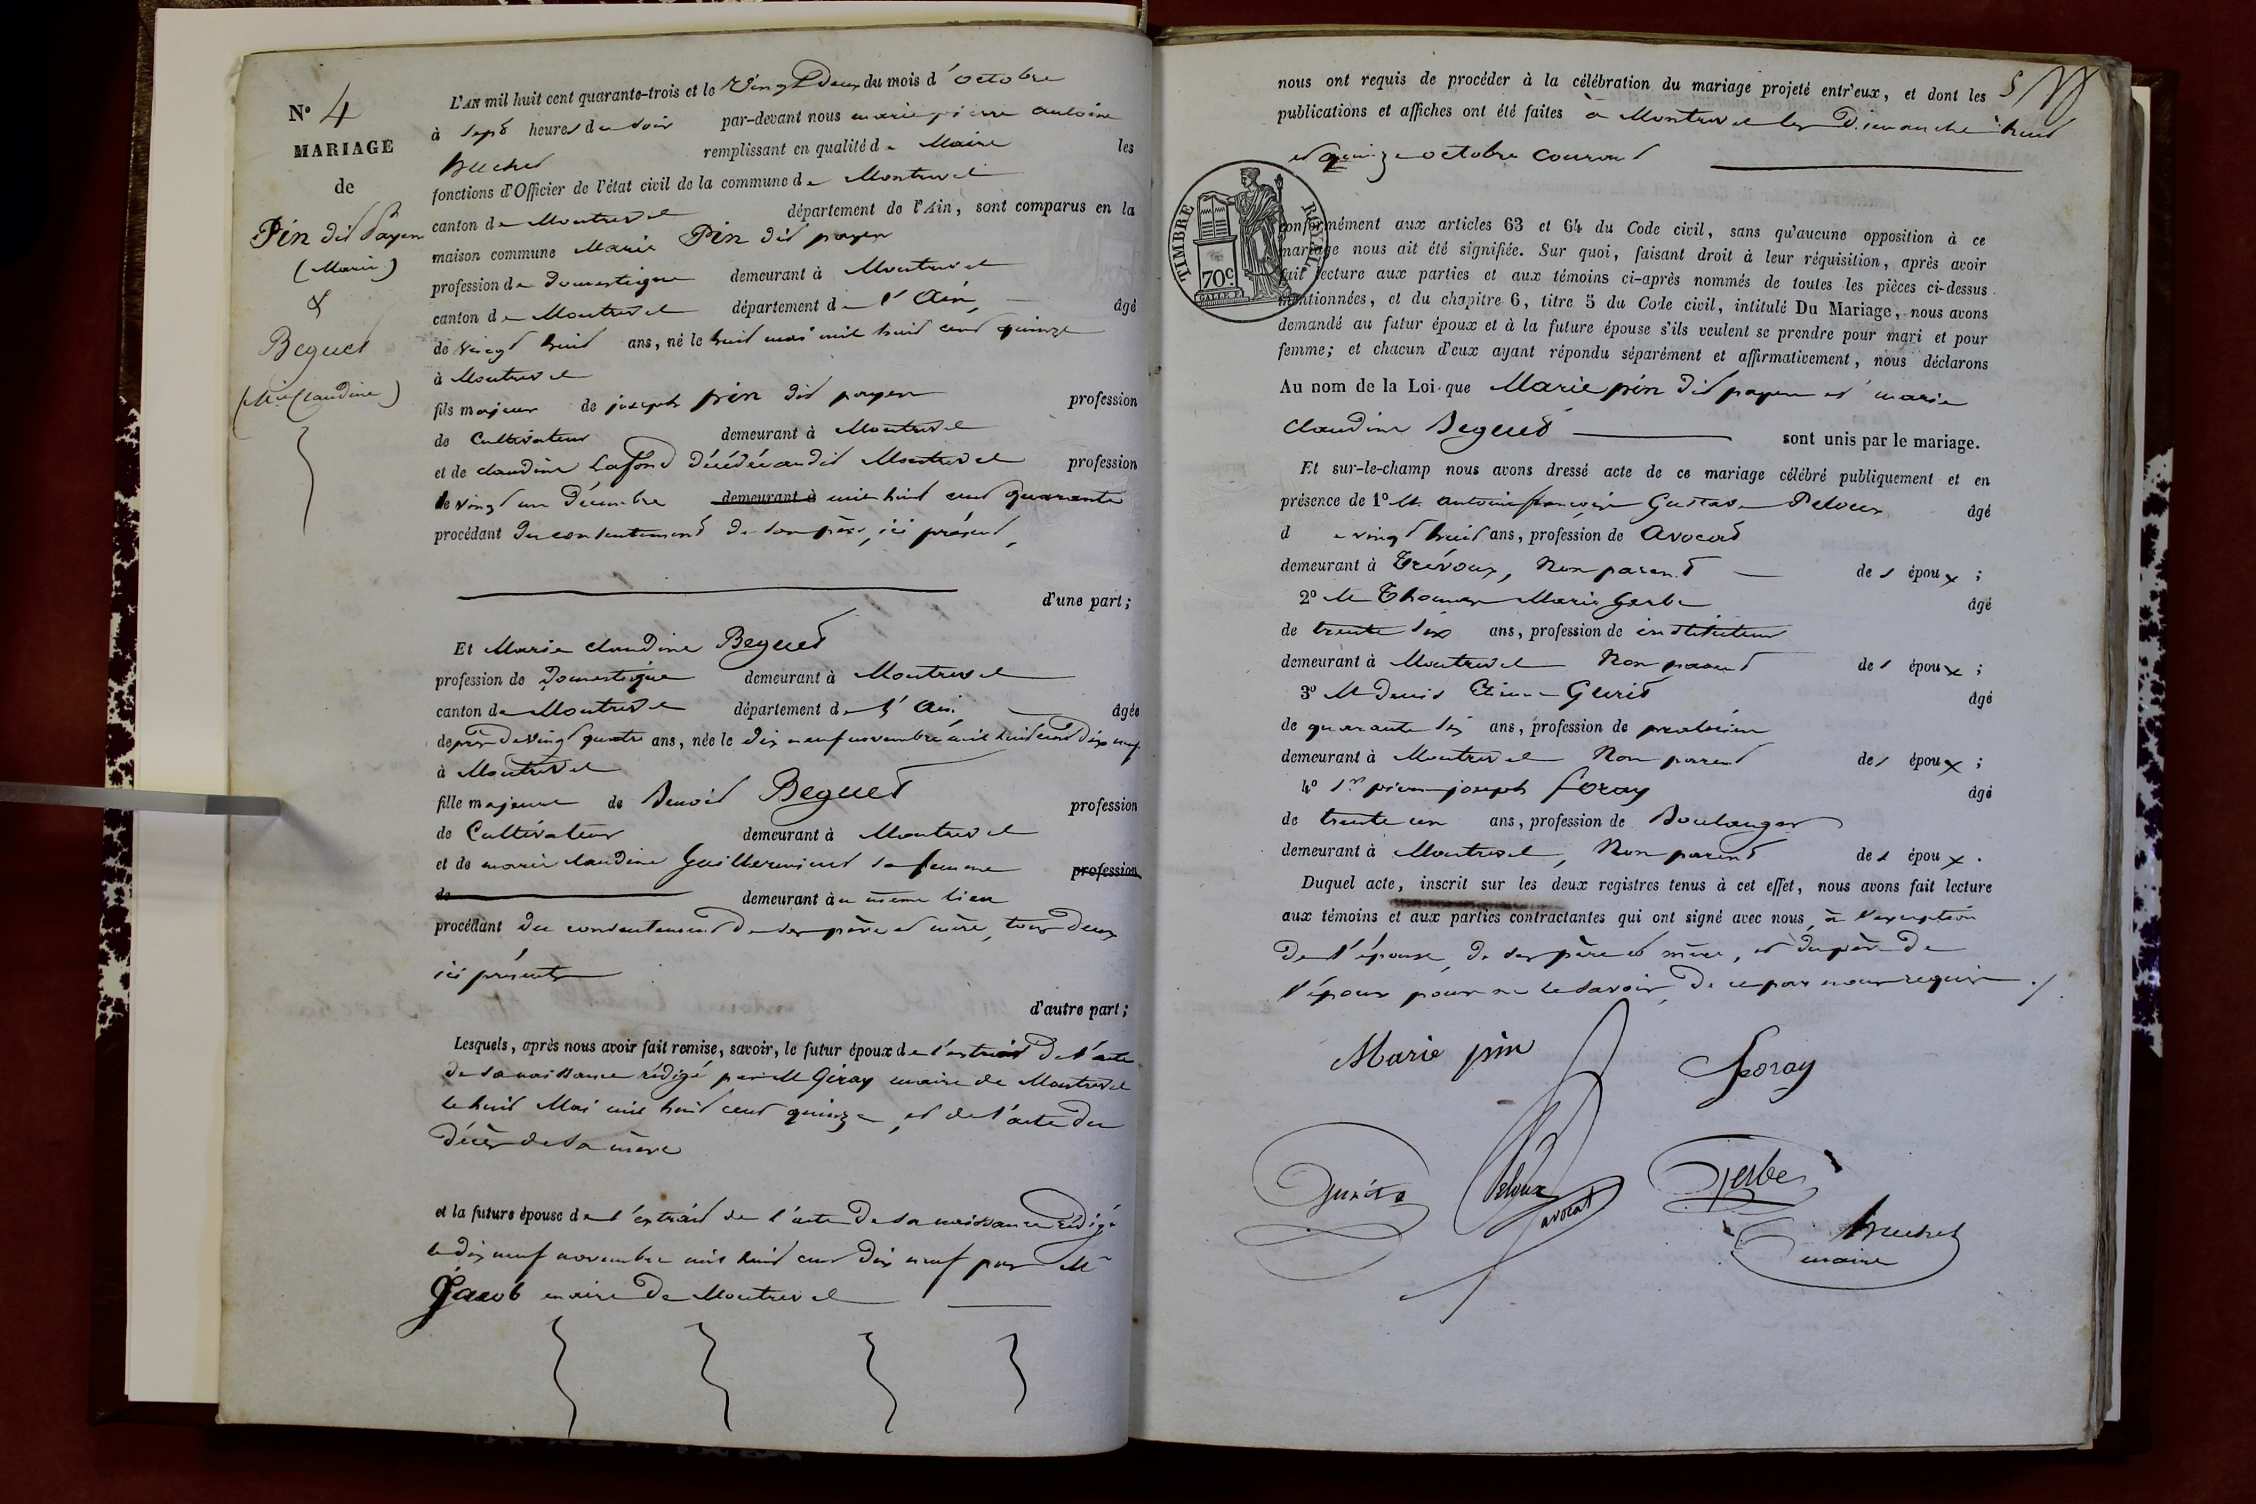 N° 4
MARIAGE
de
Pin dit Payen
(Marie)
&
Beguet
(Mie Claudine)
L'AN mil huit cent quarante-trois et le vingt deux du mois d'octobre
à sept heures du soir par-devant nous marie pierre antoine
buchet remplissant en qualité de Maire les
fonctions d'Officier de l'état civil de la commune de Montrevel
canton de Montrevel département de l'Ain, sont comparus en la
maison commune Marie Pin dit payen
profession de domestique demeurant à Montrevel
canton de Montrevel département de l'Ain, âgé
de vingt huit ans, né le huit mai mil huit cent quinze
à Montrevel
fils majeur de joseph pin dit payen profession
de Cultivateur demeurant à Montrevel
et de claudine Lafond décédée audit Montrevel profession
le vingt un Décembre demeurant à mil huit cent quarante
procédant du consentement de son père, ici présent,
d'une part;
Et Marie claudine Beguet
profession de Domestique demeurant à Montrevel
canton de Montrevel département de l'Ain âgée
de près de vingt quatre ans, née le dix neuf novembre mil huit cent dix neuf
à Montrevel
fille majeure de Benoit Beguet profession
de Cultivateur demeurant à Montrevel
et de marie claudine Guillerminet sa femme profession
de demeurant au même lieu
procédant du consentement de ses père et mère, tous deux
ici présents
d'autre part;
Lesquels, après nous avoir fait remise, savoir, le futur époux de l'extrait de l'acte
de sa naissance rédigé par M Géray maire de Montrevel
le huit Mai mil huit cent quinze, et de l'acte du
décès de sa mère
et la future épouse de l'extrait de l'acte de sa naissance rédigé
le dix neuf novembre mil huit cent dix neuf par Mr
Jacob maire de Montrevel
5
nous ont requis de procéder à la célébration du mariage projeté entr'eux, et dont les
publications et affiches ont été faites à Montrevel les Dimanche huit
et quinze octobre courant
TIMBRE ROYAL
70c
conformément aux articles 63 et 64 du Code civil, sans qu'aucune opposition à ce
mariage nous ait été signifiée. Sur quoi, faisant droit à leur réquisition, après avoir
fait lecture aux parties et aux témoins ci-après nommés de toutes les pièces ci-dessus
mentionnées, et du chapitre 6, titre 5 du Code civil, intitulé Du Mariage, nous avons
demandé au futur époux et à la future épouse s'ils veulent se prendre pour mari et pour
femme; et chacun d'eux ayant répondu séparément et affirmativement, nous déclarons
Au nom de la Loi que Marie pin dit payen et marie
claudine Beguet sont unis par le mariage.
Et sur-le-champ nous avons dressé acte de ce mariage célébré publiquement et en
présence de 1° M. antoine françois Gustave Peloux âgé
de vingt huit ans, profession de Avocat
demeurant à Trévoux, Non parent des époux;
2° M Thomas Marie Gerbe âgé
de trente six ans, profession de instituteur
demeurant à Montrevel Non parent des époux;
3° M denis Etienne Gurit âgé
de quarante six ans, profession de praticien
demeurant à Montrevel Non parent des époux;
4° Sr pierre joseph foray âgé
de trente un ans, profession de Boulanger
demeurant à Montrevel, Non parent des époux.
Duquel acte, inscrit sur les deux registres tenus à cet effet, nous avons fait lecture
aux témoins et aux parties contractantes qui ont signé avec nous, à l'exception
de l'épouse, de ses père et mère, et du père de
l'époux pour ne le savoir, de ce par nous requis ./
Marie pin
foray
Peloux
avocat
Gerbe
buchet
maire